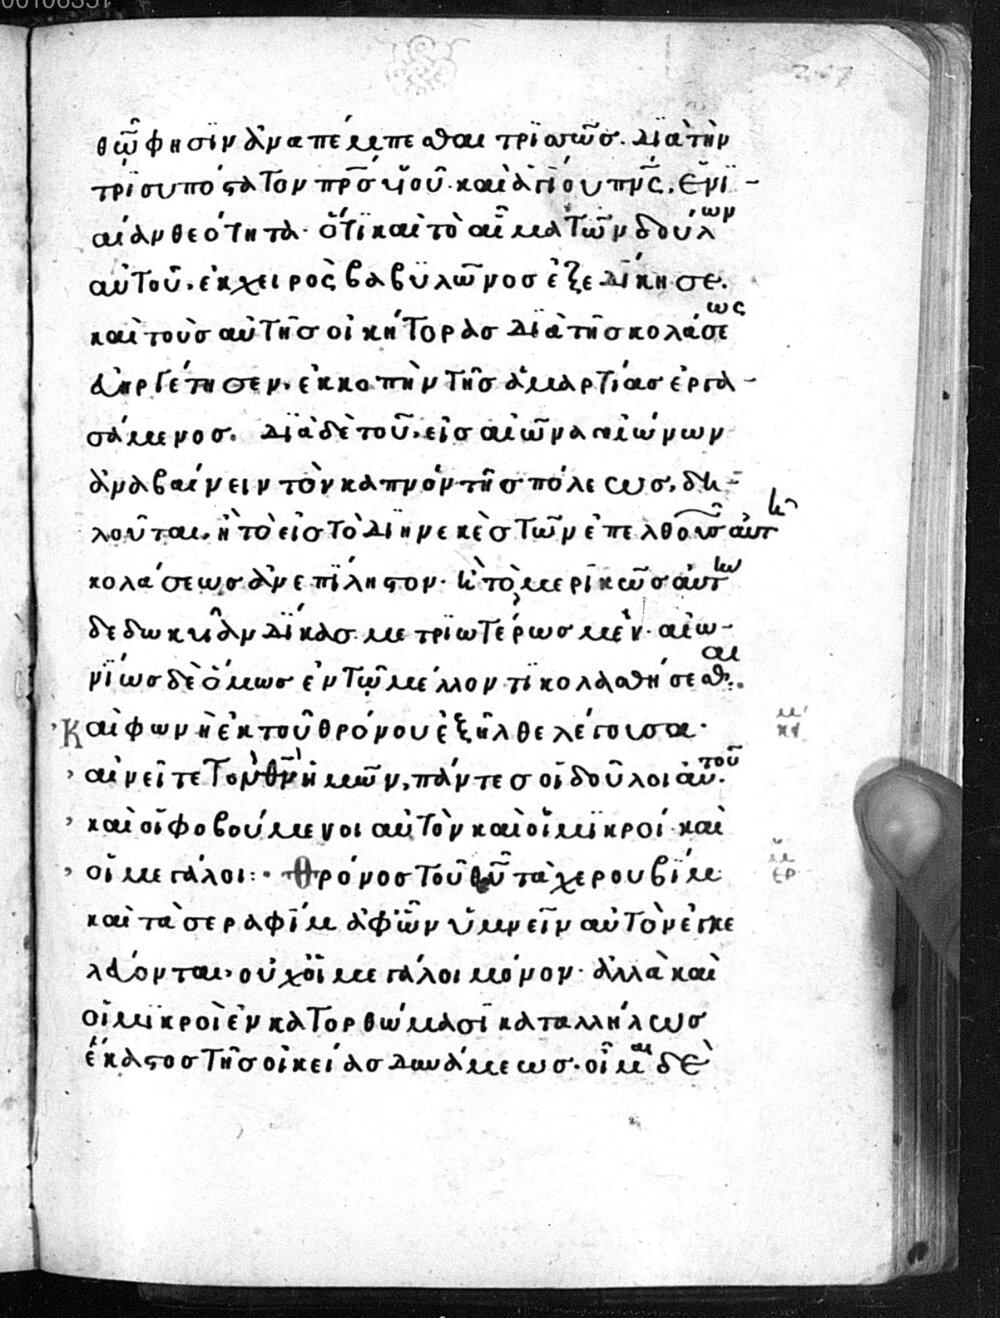 θῶ φησϊν ἀναπέμπεσθαι τρϊσσῶσ. δϊὰ τὴν
τρϊσυπόστατον πρ̅σ ϋἱοῦ· καὶ ἁγίου πν̅ς. ἑνϊ-
αίαν θεότητα· ὅτϊ καὶ τὸ αἷμα τῶν δούλων
αὐτοῦ, ἐκ χειρὸς βαβϋλῶνοσ ἐξεδίκησε.
καὶ τοὺσ αὐτῆσ οἰκήτορασ δϊὰ τῆσ κολάσεως
εὐηργέτησεν, ἐκκοπὴν τῆσ ἁμαρτίασ ἐργα-
σάμενοσ. δϊὰ δὲ τοῦ, εἰσ αἰῶνα αἰώνων
ἀναβαίνειν τὸν καπνὸν τῆσ πόλεωσ, δη-
λοῦται, ἢ τὸ εἰσ τὸ δϊηνεκὲσ τῶν ἐπελθουσῶν αὐτῆ
κολάσεωσ ἀνεπίληστον· ἢ τὸ μερϊκῶσ αὐτὴν
δεδωκυῖαν δίκασ μετρϊωτέρωσ μὲν· αἰω-
νϊωσ δὲ ὅμωσ ἐν τῷ μέλλοντϊ κολασθήσεσθαι.
Καὶ φωνὴ ἐκ τοῦ θρόνου ἐξῆλθε λέγουσα·
αἰνεῖτε τὸν θν̅ ἡμῶν, πάντεσ οἱ δοῦλοι αὐτοῦ.
καὶ οἱ φοβούμενοι αὐτὸν καὶ οἱ μϊκροὶ· καὶ
οἱ μεγάλοι:· Θρόνοσ τοῦ θυ̅ τὰ χερουβὶμ
καὶ τὰ σεραφὶμ ἀφ' ὧν ὑμνεῖν αὐτὸν ἐγκε
λεύονται, οὐχ οἱ μεγάλοι μόνον· ἀλλὰ καὶ
οἱ μϊκροὶ ἐν κατορθώμασϊ καταλλήλωσ
ἕκαστοσ τῆσ οἰκείασ δυνάμεωσ. οἶμαι δὲ